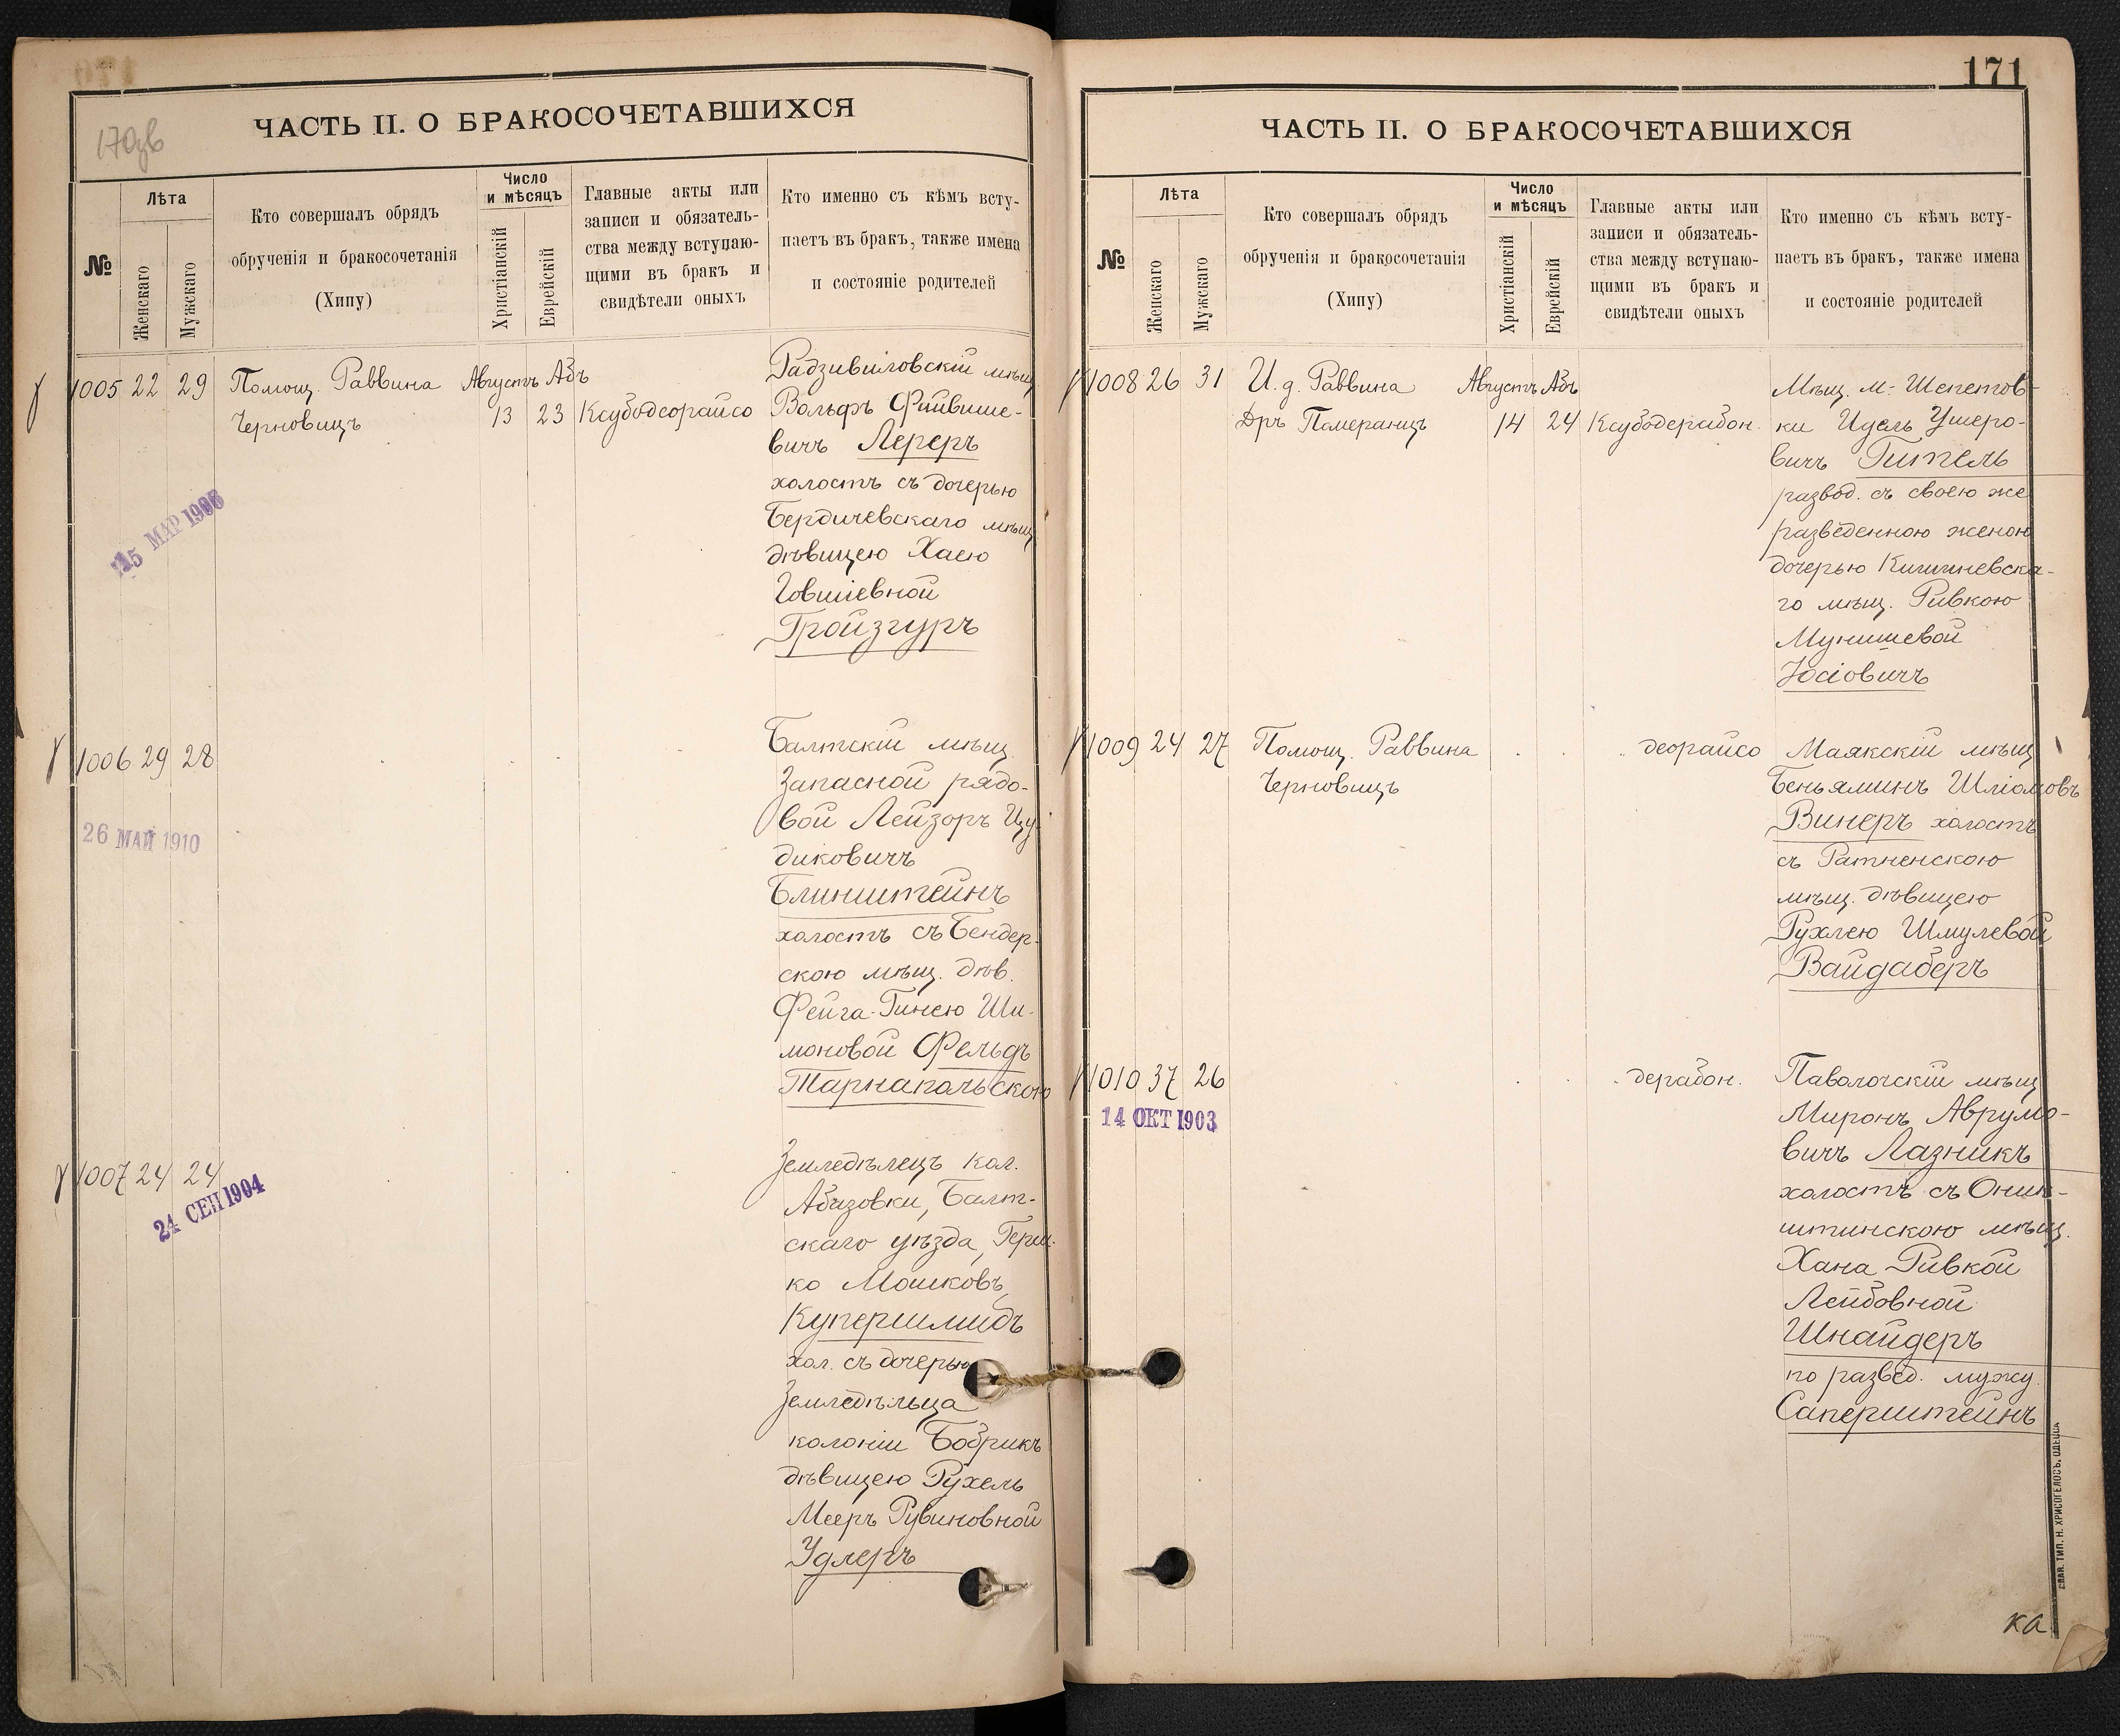 170зв
ЧАСТЬ II. О БРАКОСОЧЕТАВШИХСЯ
№
Лѣта
Женскаго
Мужскаго
Кто совершалъ обрядъ
обрученія и бракосочетанія
(Хипу)
Число
и мѣсяцъ
Христіанскій
Еврейскій
Главные акты или
записи и обязатель-
ства между вступаю-
щими въ бракъ и
свидѣтели оныхъ
Кто именно съ кѣмъ всту-
паетъ въ бракъ, также имена
и состояніе родителей
1005 22 29 Помощ. Раввина Августъ Абъ
Черновицъ 13 23 Ксубодеорайсо
Радзивиловскій мѣщ.
Вольфъ Файвише-
вичъ Лереръ
холостъ съ дочерью
Бердичевскаго мѣщ.
дѣвицею Хаею
Іовшіевной
Гройзгуръ
15 МАР 1906
1006 29 28
26 МАЙ 1910
Балтскій мѣщ.
Запасной рядо-
вой Лейзоръ Иц
диковичъ
Блинштейнъ
холостъ съ Бендер-
скою мѣщ. дѣв.
Фейга-Гинею Ши-
моновой Фельдъ
Тарнапольскою
1007 24 24
24 СЕН 1904
Земледѣлецъ кол.
Абазовки, Балт-
скаго уѣзда, Герш-
ко Мошковъ
Купершмидъ
хол. съ дочерью
Земледѣльца
колоніи Бобрикъ
дѣвицею Рухель
Мееръ Рувиновной
Удлеръ
171
ЧАСТЬ II. О БРАКОСОЧЕТАВШИХСЯ
№
Лѣта
Женскаго
Мужскаго
Кто совершалъ обрядъ
обрученія и бракосочетанія
(Хипу)
Число
и мѣсяцъ
Христіанскій
Еврейскій
Главные акты или
записи и обязатель-
ства между вступаю-
щими въ бракъ и
свидѣтели оныхъ
Кто именно съ кѣмъ всту-
паетъ въ бракъ, также имена
и состояніе родителей
1008 26 31 И. д. Раввина Августъ Абъ
Дръ Померанцъ 14 24 Ксубодерабон.
Мѣщ. м. Шепетов-
ки Идель Ушеро-
вичъ Гитель
развод. съ своею же
разведенною женою
дочерью Кишиневска-
го мѣщ. Ривкою
Мунишевой
Юсіовичъ
1009 24 27 Помощ. Раввина деорайсо
Черновицъ
Маякскій мѣщ
Беньяминъ Шліомовъ
Винеръ холостъ
съ Ратненскою
мѣщ. дѣвицею
Рухлею Шмулевой
Вайдаберъ
1010 37 26 дерабон.
14 ОКТ 1903
Паволочскій мѣщ
Миронъ Аврумо-
вичъ Лазникъ
холостъ съ Оник-
штинскою мѣщ.
Хана Ривкой
Лейбовной
Шнайдеръ
по развед. мужу
Саперштейнъ
СЛАВ. ТИП. Н. ХРИСОГЕЛОСЪ, ОДЕССА
ка